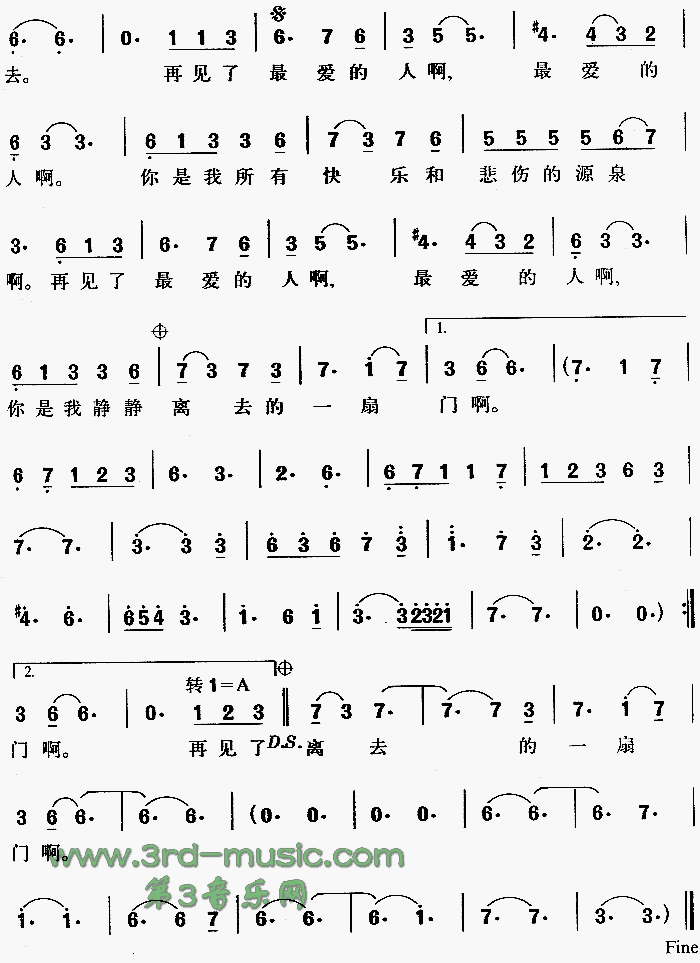 6· 6· | 0· 1 1 3 | 6· 7 6 | 3 5 5· | #4· 4 3 2
去。 再见了 最 爱的 人啊, 最 爱 的
6 3 3· | 6 1 3 3 6 | 7 3 7 6 | 5 5 5 5 6 7
人 啊。 你是我所有 快 乐和 悲伤的源泉
3· 6 1 3 | 6· 7 6 | 3 5 5· | #4· 4 3 2 | 6 3 3·
啊。再见了 最 爱的 人啊, 最 爱 的 人啊,
1.
6 1 3 3 6 | 7 3 7 3 | 7· i 7 | 3 6 6· | (7· 1 7
你是我静静 离 去的 一 扇 门啊。
6 7 1 2 3 | 6· 3· | 2· 6· | 6 7 1 1 7 | 1 2 3 6 3
7· 7· | 3· 3 3 | 6 3 6 7 3 | 1· 7 3 | 2· 2·
#4· 6· | 6 5 4 3· | i· 6 i | 3· 3 2 3 2 1 | 7· 7· | 0· 0·) :||
2.
转1=A
3 6 6· | 0· 1 2 3 || 7 3 7· | 7· 7 3 | 7· i 7
门啊。 再见了D.S.离 去 的 一 扇
3 6 6· | 6· 6· | (0· 0· | 0· 0· | 6· 6· | 6· 7·
门 啊。
www.3rd-music.com
第3音乐网
i· i· | 6· 6 7 | 6· 6· | 6· i· | 7· 7· | 3· 3·) ||
Fine